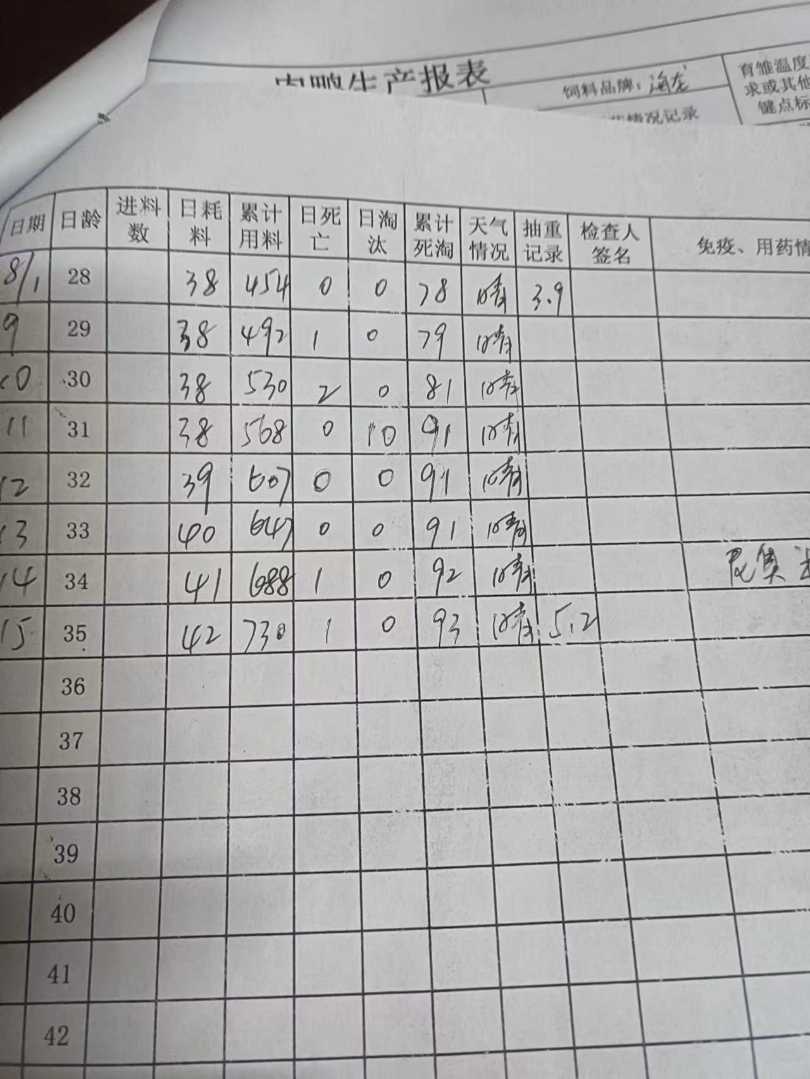 肉鸭生产报表
饲料品牌：海龙
育雏温度
求或其他
键点标
情况记录
日期 日龄 进料数 日耗料 累计用料 日死亡 日淘汰 累计死淘 天气情况 抽重记录 检查人签名 免疫、用药情
8/1 28 38 454 0 0 78 晴 3.9
9 29 38 492 1 0 79 晴
10 30 38 530 2 0 81 晴
11 31 38 568 0 10 91 晴
12 32 39 607 0 0 91 晴
13 33 40 647 0 0 91 晴
14 34 41 688 1 0 92 晴
15 35 42 730 1 0 93 晴 5.2
36
37
38
39
40
41
42